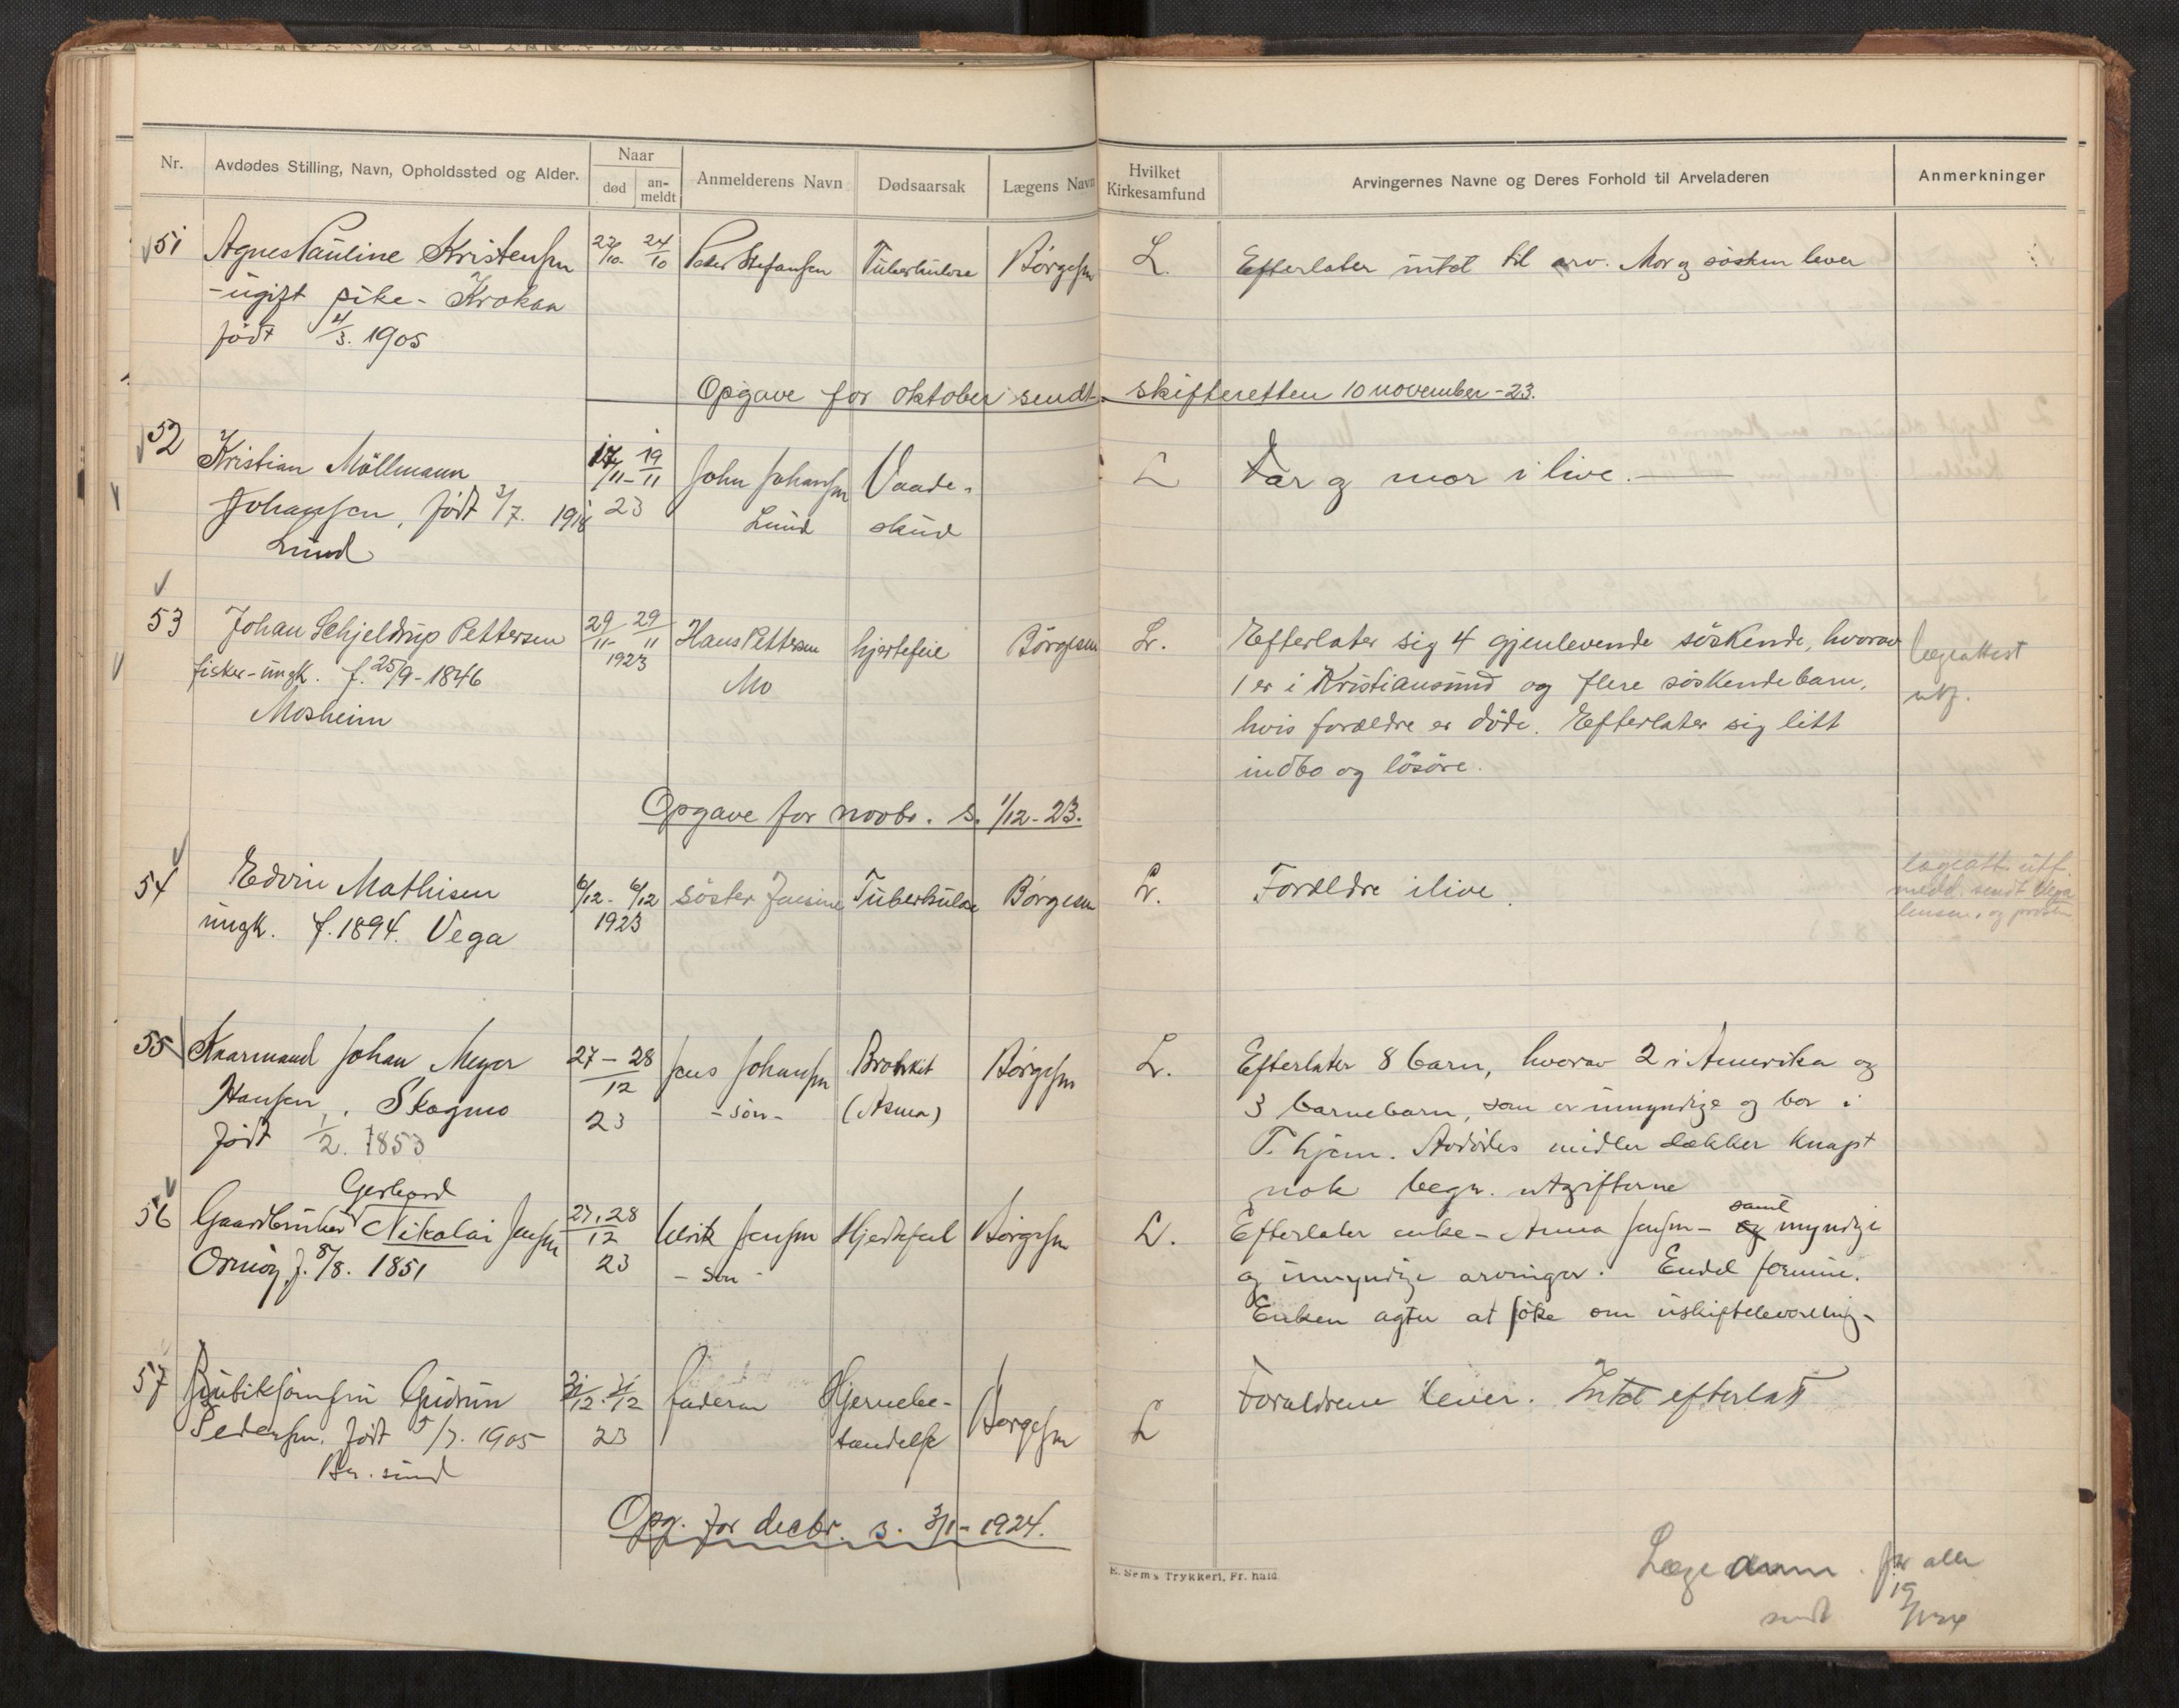 Nr. Avdødes Stilling, Navn, Opholdssted og Alder. Naar død an-meldt Anmelderens Navn Dødsaarsak Lægens Navn Hvilket Kirkesamfund Arvingernes Navne og Deres Forhold til Arveladeren Anmerkninger
51 Agnes Pauline Kristensen 22/10. 24/10 Peder Stefansen Tuberkulose Børgesen L. Efterlater intet til arv. Mor og søsken lever
- ugift pike - Krokan
født 4/3. 1905
Opgave for oktober sendt skifteretten 10 november - 23.
52 Kristian Möllmann 17/11 - 19/11 John Johansen Vaade- L Far og mor i live.
Johansen, født 2/7. 1918 23 Lund skud
Lund
53 Johan Schjeldrup Pettersen 29/11 - 29/11 Hans Pettersen hjertefeil Børgesen L. Efterlater sig 4 gjenlevende söskende, hvorav lægeattest
fisker - ungk. f. 25/9 - 1846 1923 Mo 1 er i Kristiansund og flere söskendebarn, utf.
Mosheim hvis forældre er døde. Efterlater sig litt
indbo og lösöre.
Opgave for novbr. s. 1/12 - 23.
54 Edvin Mathisen 6/12 - 6/12 söster Jensine Tuberkulose Børgesen L. Forældre ilive. lægeatt. utf.
ungk. f. 1894. Vega 1923 medd. sendt Vega
lensm. og presten
55 Kaarmand Johan Meyer 27 - 28 Jens Johansen Bronkit Børgesen L. Efterlater 8 barn, hvorav 2 i Amerika og
Hansen, Skogmo 12 - søn - (Asma) 3 barnebarn, som er umyndige og bor i
født 1/2. 1853 23 T.hjem. Avdødes midler dækker knapt
nok begr. utgifterne
Gerhard
56 Gaardbruker Nikolai Jensen 27. 28 Ulrik Jensen Hjertefeil Børgesen L. Efterlater enke - Anna Jensen - og samt myndige
Ormøy, f. 8/8. 1851 12 23 - søn - og umyndige arvinger. Endel formue.
Enken agter at søke om uskiftebevilling -
57 Butikjomfru Gudrun 31/12. 31/12 faderen Hjernebe- Børgesen L Forældrene lever. Intet efterlatt
Pedersen. født 5/7. 1905 23 tændelse
Br. sund
Opg. for decbr. s. 3/1 - 1924.
E. Sems Trykkeri, Fr.hald
Læge anm. for alle
sendt